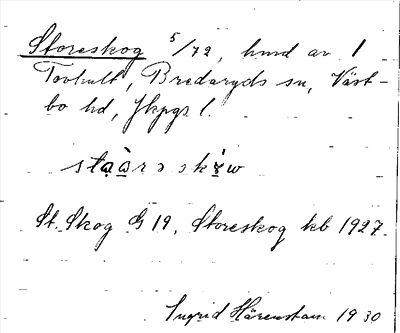 Storeskog 5/72, hmd av 1
Tovhult, Bredaryds sn, Väst-
bo hd, Jkpgs l.
St. Skog G 19, Storeskog kb 1927.
Ingrid Härenstam 1930